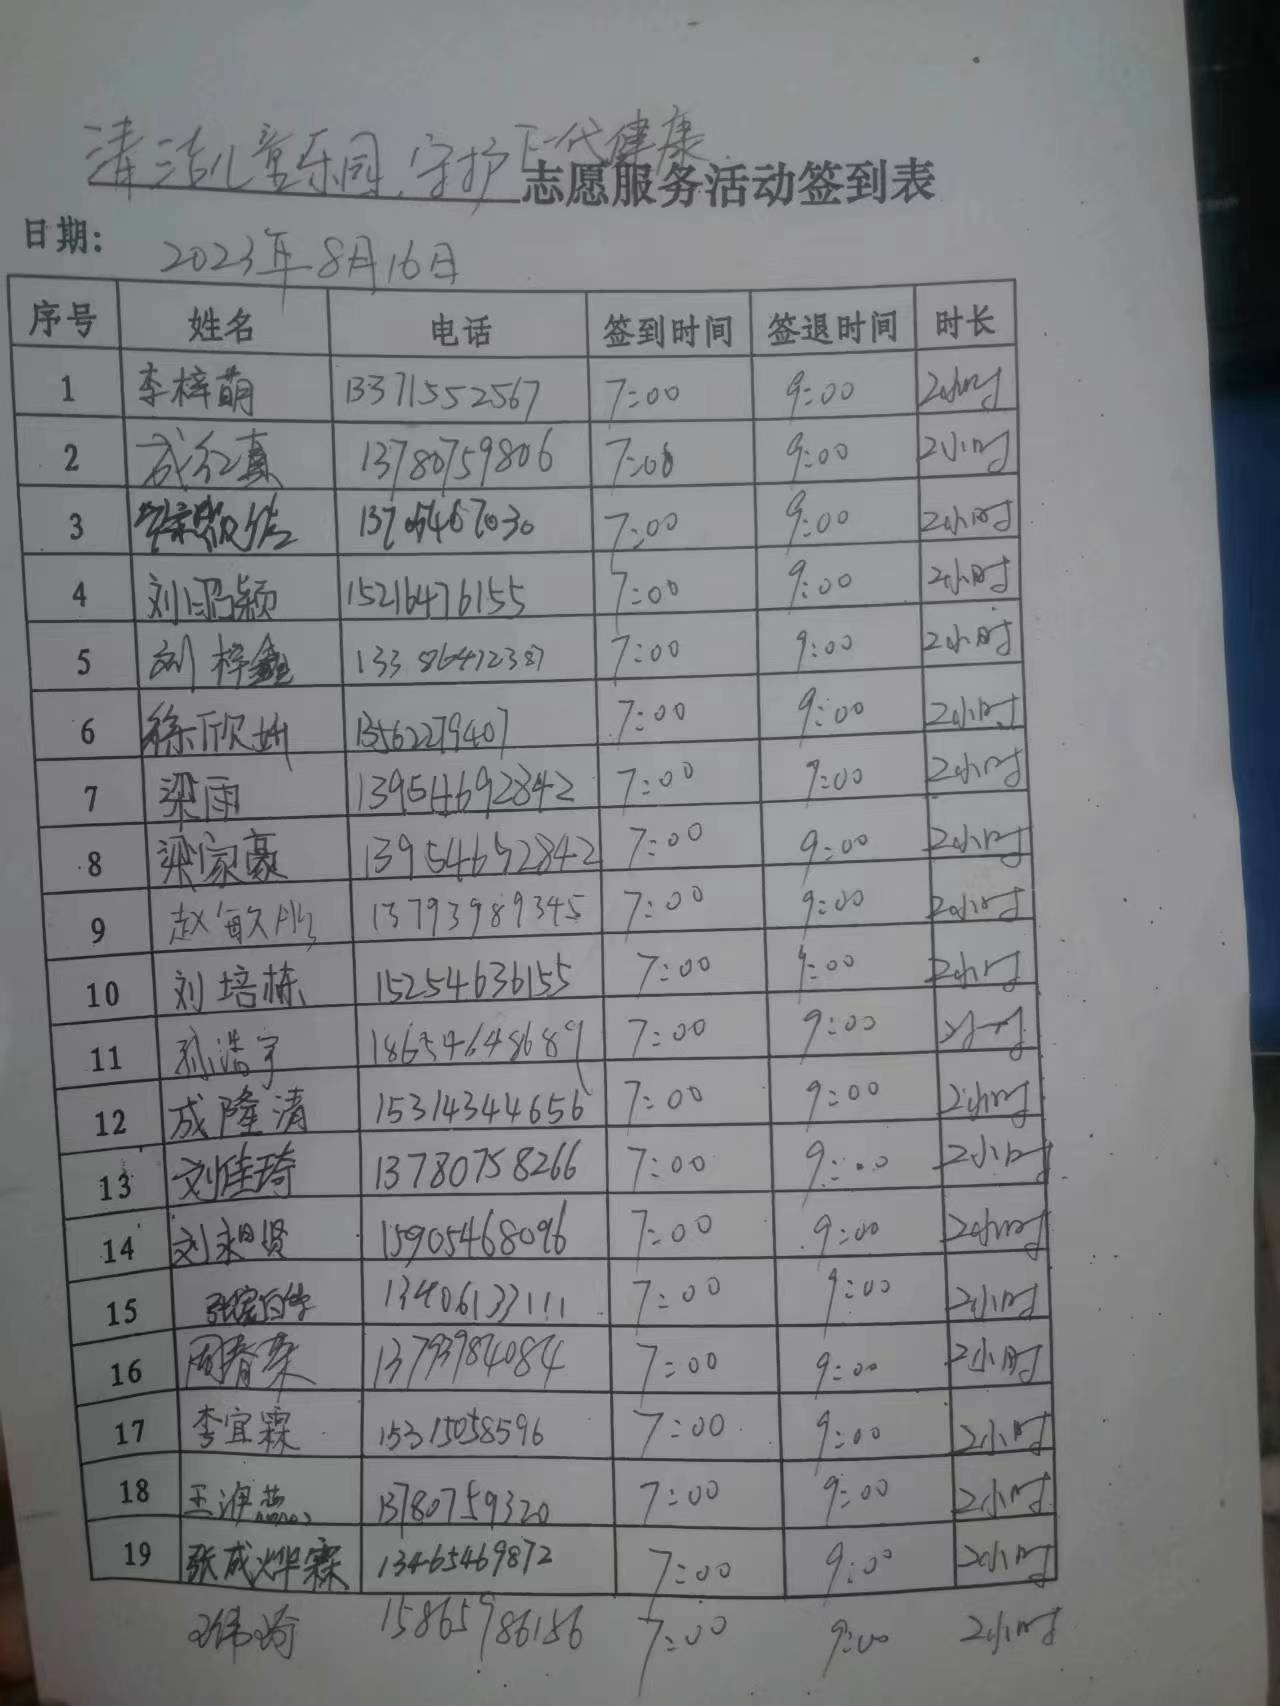 清洁儿童乐园，守护下一代健康
志愿服务活动签到表
日期: 2023年8月16日
序号 姓名 电话 签到时间 签退时间 时长
1 李梓萌 13371552567 7:00 9:00 2小时
2 成红真 13780759806 7:00 9:00 2小时
3 7:00 9:00 2小时
4 刘 颖 15216476155 7:00 9:00 2小时
5 刘梓鑫 13386472387 7:00 9:00 2小时
6 徐欣妍 13562279407 7:00 9:00 2小时
7 梁雨 13954692842 7:00 9:00 2小时
8 梁家豪 13954692842 7:00 9:00 2小时
9 赵敏彤 13793989345 7:00 9:00 2小时
10 刘培栋 15254636155 7:00 9:00 2小时
11 孙浩宇 18654648689 7:00 9:00 2小时
12 成隆清 15314344656 7:00 9:00 2小时
13 刘佳琦 13780758266 7:00 9:00 2小时
14 刘 贤 15905468096 7:00 9:00 2小时
15 13406133111 7:00 9:00 2小时
16 周春荣 13793984084 7:00 9:00 2小时
17 李宜霖 15315058596 7:00 9:00 2小时
18 王 13780759320 7:00 9:00 2小时
19 张成烨霖 13465469872 7:00 9:00 2小时
15865986156 7:00 9:00 2小时